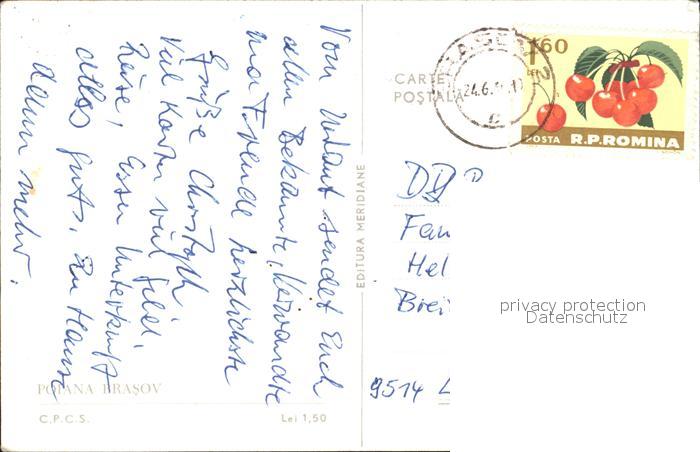 Vom Urlaub sendet Euch
allen Bekannte, Verwandte
und Freunde herzlichste
Grüße Christoph
Viel Karten viel Geld.
Reise, Essen Unterkunft
alles gut. Zu Hause
dann mehr.
POIANA BRAȘOV
C.P.C.S.
Lei 1,50
EDITURA MERIDIANE
CARTE
POȘTALĂ
24.6.
1.60
POSTA R.P.ROMINA
Fam
Hel
Brei
9514 L
privacy protection
Datenschutz